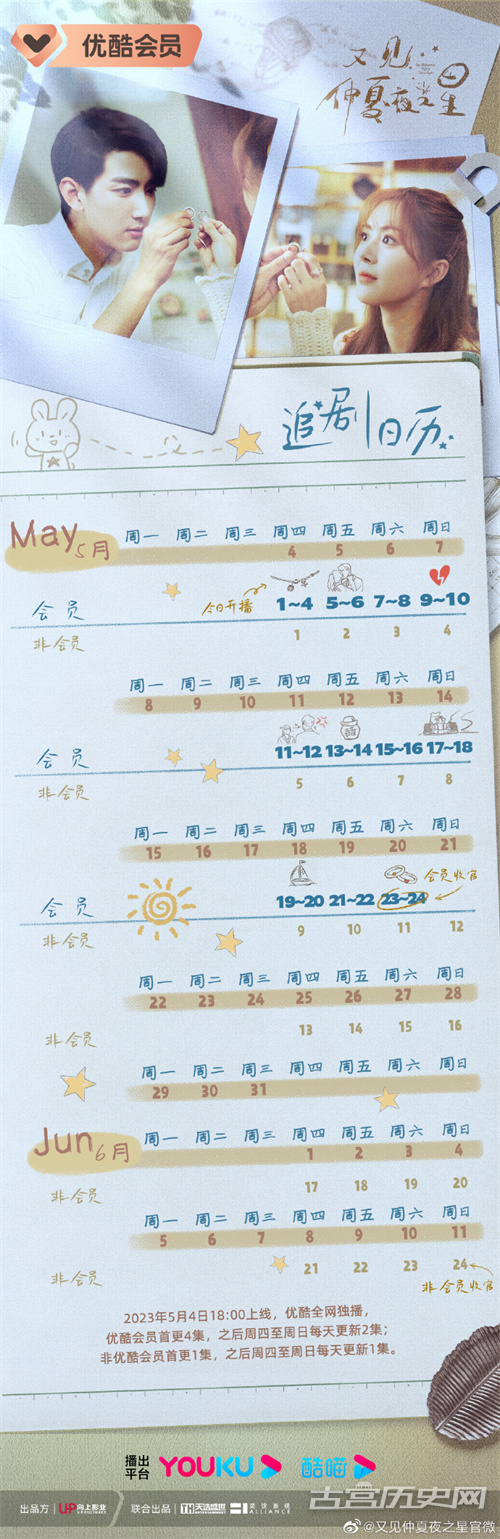 优酷会员
又见
仲夏夜之星
追剧日历
May 5月
周一 周二 周三 周四 周五 周六 周日
4 5 6 7
会员 今日开播 1~4 5~6 7~8 9~10
非会员 1 2 3 4
周一 周二 周三 周四 周五 周六 周日
8 9 10 11 12 13 14
会员 11~12 13~14 15~16 17~18
非会员 5 6 7 8
周一 周二 周三 周四 周五 周六 周日
15 16 17 18 19 20 21
会员收官
会员 19~20 21~22 23~24
非会员 9 10 11 12
周一 周二 周三 周四 周五 周六 周日
22 23 24 25 26 27 28
非会员 13 14 15 16
周一 周二 周三 周四 周五 周六 周日
29 30 31
Jun 6月
周一 周二 周三 周四 周五 周六 周日
1 2 3 4
非会员 17 18 19 20
周一 周二 周三 周四 周五 周六 周日
5 6 7 8 9 10 11
非会员 21 22 23 24
非会员收官
2023年5月4日18:00上线，优酷全网独播，
优酷会员首更4集，之后周四至周日每天更新2集；
非优酷会员首更1集，之后周四至周日每天更新1集。
播出平台 YOUKU 酷喵
出品方 UP 海上影业 联合出品 TH 天浩盛世 ALLIANCE
古宫历史网
@又见仲夏夜之星官微